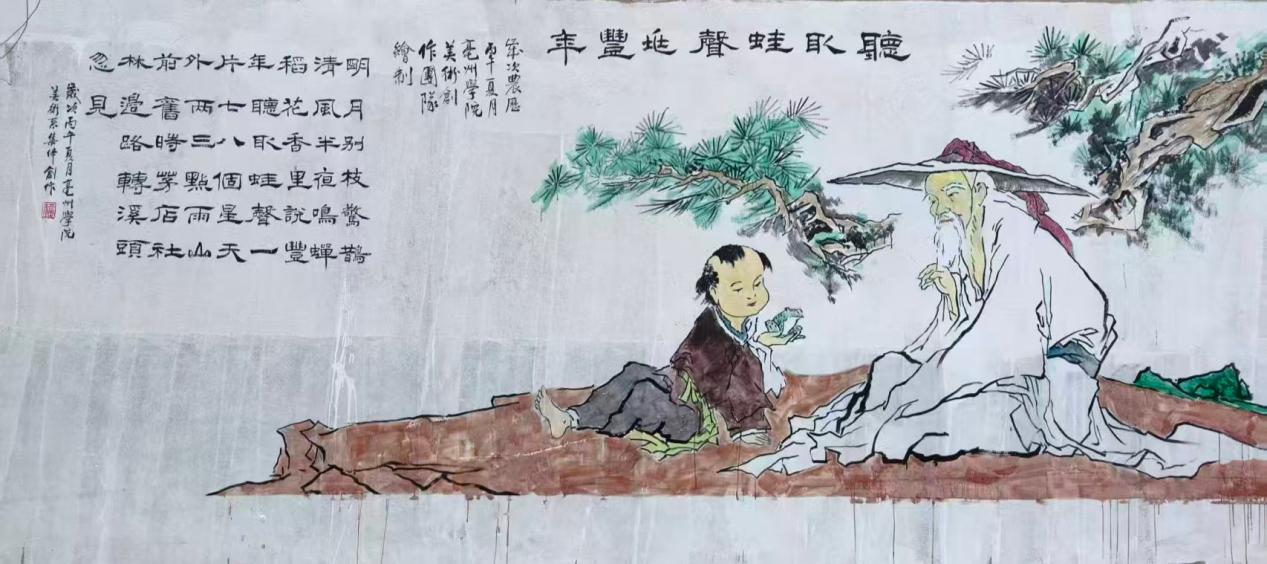 聽取蛙聲豐年
歲次農歷
丙午夏月
亳州學院
美術創
作團隊
繪制
明月别枝驚鵲
清風半亱鳴蟬
稻花香里說豐
年聽取蛙聲一
片七八個星天
外兩三點雨山
前舊時茅店社
林邊路轉溪頭
忽見
歲次丙午夏月亳州學院
美術系集体創作